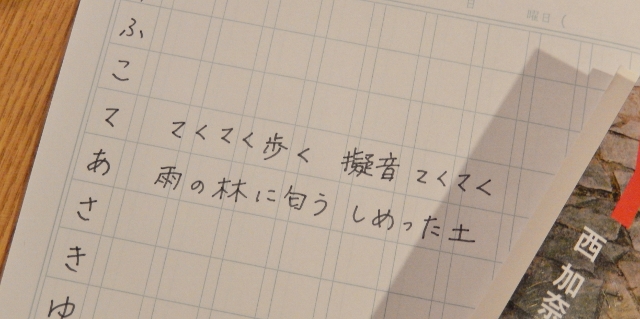 日
曜日（
ふ
こ
て　てくてく歩く　擬音てくてく
あ　雨の林に匂う　しめった土
さ
き
ゆ
西加奈